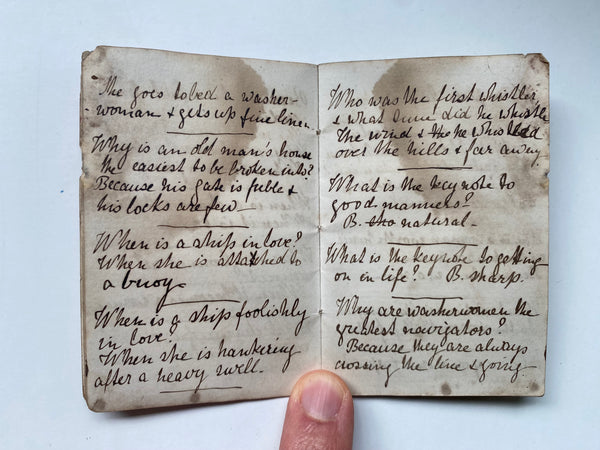 She goes to bed a washer-
woman & gets up fine linen.
Why is an old man's house
the easiest to be broken into?
Because his gate is fuble &
his locks are few
When is a ship in love?
When she is attatched to
a buoy.
When is a ship foolishly
in love.
When she is hankering
after a heavy swell.
Who was the first whistler
& what tune did he whistle
The wind & he whistled
over the hills & far away.
What is the keynote to
good manners?
B. natural.
What is the keynote to getting
on in life? B. sharp.
Why are washerwomen the
greatest navigators?
Because they are always
crossing the line & going